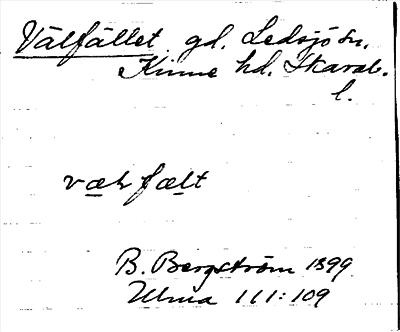 Välfället gd. Ledsjö sn.
Kinne hd. Skarab.
l.
væl fælt
B. Bergström 1899
Ulma 111:109